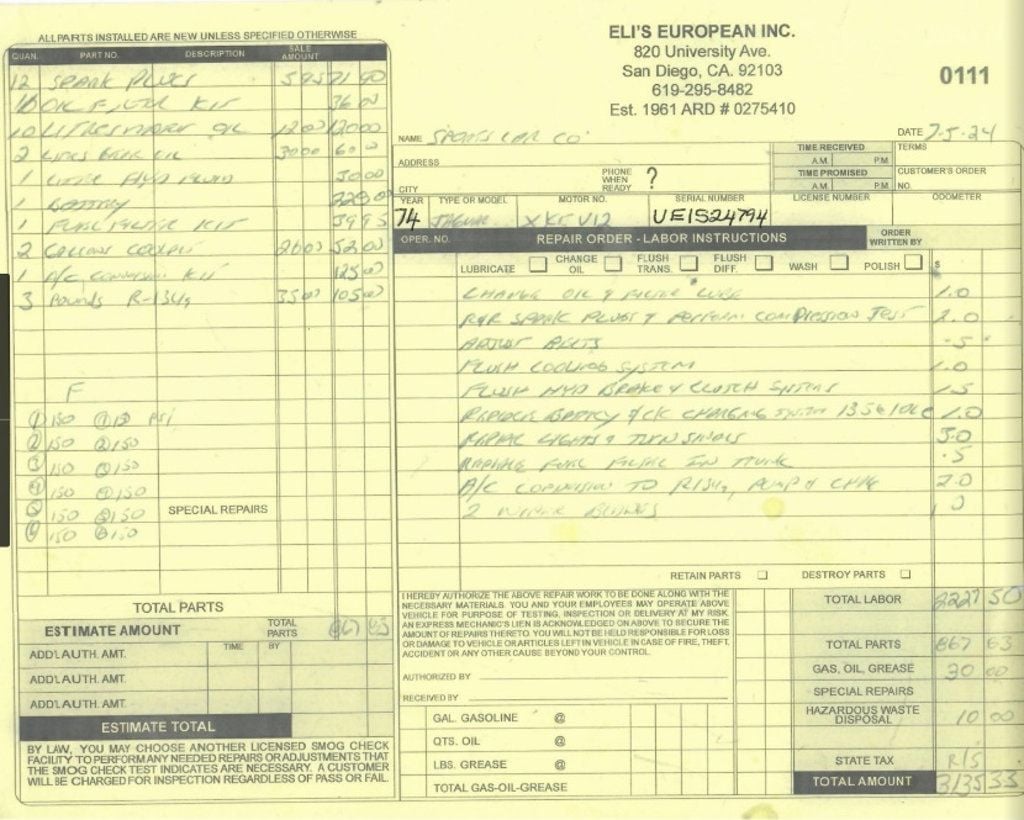 ALL PARTS INSTALLED ARE NEW UNLESS SPECIFIED OTHERWISE
QUAN. PART NO. DESCRIPTION SALE AMOUNT
12 SPARK PLUGS 5 95 71 40
OIL FILTER KIT 36 00
10 LITRES MOTOR OIL 12 00 120 00
2 LITRES GEAR OIL 30 00 60 00
1 LITRE HYD FLUID 30 00
1 BATTERY 228 00
1 FUEL FILTER KIT 39 95
2 GALLONS COOLANT 26 00 52 00
1 A/C CONVERSION KIT 125 00
3 POUNDS R-134a 35 00 105 00
F
① 150 ① 150 PSI
② 150 ② 150
③ 150 ③ 150
④ 150 ④ 150
⑤ 150 ⑤ 150 SPECIAL REPAIRS
⑥ 150 ⑥ 150
TOTAL PARTS
ESTIMATE AMOUNT TOTAL PARTS 867
ADD'L AUTH. AMT. TIME BY
ADD'L AUTH. AMT.
ADD'L AUTH. AMT.
ESTIMATE TOTAL
BY LAW, YOU MAY CHOOSE ANOTHER LICENSED SMOG CHECK
FACILITY TO PERFORM ANY NEEDED REPAIRS OR ADJUSTMENTS THAT
THE SMOG CHECK TEST INDICATES ARE NECESSARY. A CUSTOMER
WILL BE CHARGED FOR INSPECTION REGARDLESS OF PASS OR FAIL.
ELI'S EUROPEAN INC.
820 University Ave.
San Diego, CA. 92103
619-295-8482
Est. 1961 ARD # 0275410
0111
NAME SPORTS CAR CO DATE 7-5-24
ADDRESS TIME RECEIVED A.M. P.M. TERMS
CITY PHONE WHEN READY ? TIME PROMISED A.M. P.M. CUSTOMER'S ORDER NO.
YEAR TYPE OR MODEL MOTOR NO. SERIAL NUMBER LICENSE NUMBER ODOMETER
74 JAGUAR XKE V12 UE1S24794
OPER. NO. REPAIR ORDER - LABOR INSTRUCTIONS ORDER WRITTEN BY
LUBRICATE CHANGE OIL FLUSH TRANS. FLUSH DIFF. WASH POLISH $
CHANGE OIL & FILTER LUBE 1.0
R&R SPARK PLUGS & PERFORM COMPRESSION TEST 2.0
ADJUST BELTS .5
FLUSH COOLING SYSTEM 1.0
FLUSH HYD BRAKE & CLUTCH SYSTEMS 1.5
REPLACE BATTERY & C/K CHARGING SYSTEM 1.0
REPAIR LIGHTS & TURN SIGNALS 3.0
REPLACE FUEL FILTER IN TRUNK .5
A/C CONVERSION TO R134a, PUMP & CHG 2.0
2 WIPER BLADES
RETAIN PARTS DESTROY PARTS
I HEREBY AUTHORIZE THE ABOVE REPAIR WORK TO BE DONE ALONG WITH THE
NECESSARY MATERIALS. YOU AND YOUR EMPLOYEES MAY OPERATE ABOVE
VEHICLE FOR PURPOSE OF TESTING, INSPECTION OR DELIVERY AT MY RISK.
AN EXPRESS MECHANIC'S LIEN IS ACKNOWLEDGED ON ABOVE TO SECURE THE
AMOUNT OF REPAIRS THERETO. YOU WILL NOT BE HELD RESPONSIBLE FOR LOSS
OR DAMAGE TO VEHICLE OR ARTICLES LEFT IN VEHICLE IN CASE OF FIRE, THEFT,
ACCIDENT OR ANY OTHER CAUSE BEYOND YOUR CONTROL.
AUTHORIZED BY
RECEIVED BY
GAL. GASOLINE @
QTS. OIL @
LBS. GREASE @
TOTAL GAS-OIL-GREASE
TOTAL LABOR 2227 50
TOTAL PARTS 867
GAS, OIL, GREASE 30 00
SPECIAL REPAIRS
HAZARDOUS WASTE DISPOSAL 10 00
STATE TAX R/S
TOTAL AMOUNT 3135